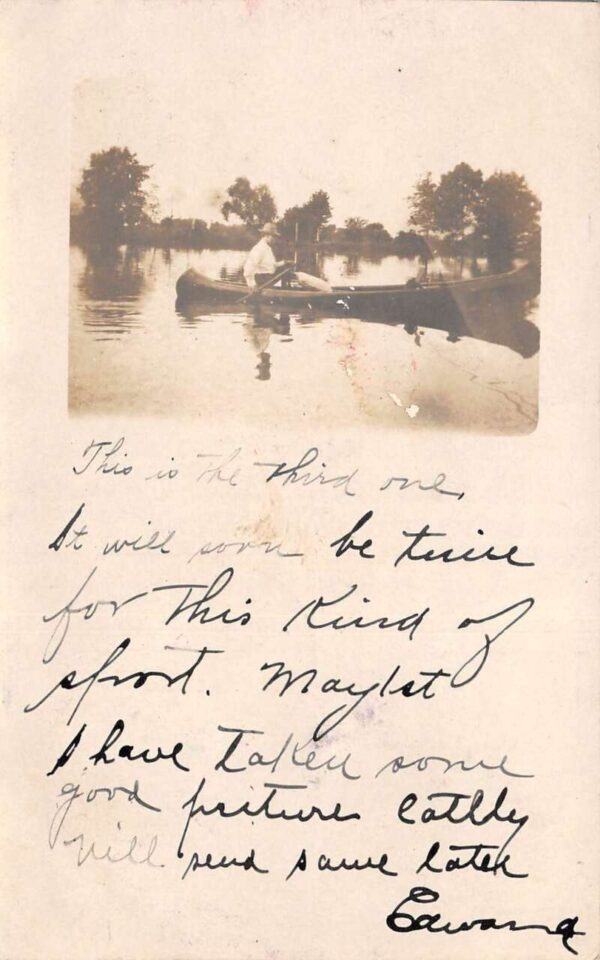 This is the third one.
It will soon be time
for this kind of
sport. May 1st
I have taken some
good pictures latley
will send some later
Edward